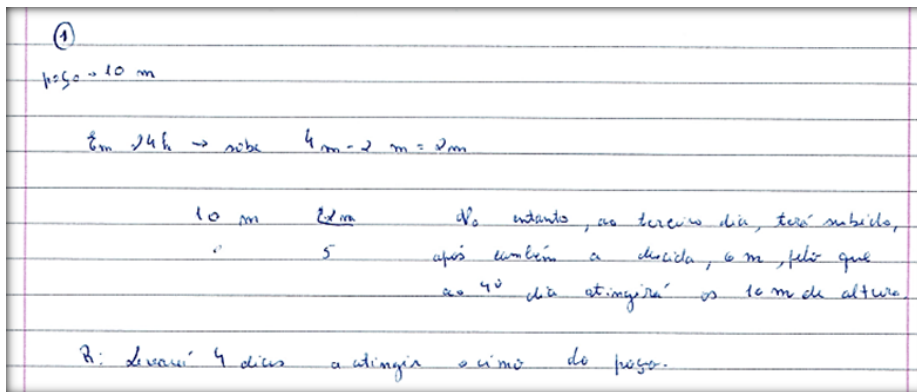 ①
poço → 10 m
Em 24h → sobe 4m - 2 m = 2m
10 m 2m No entanto, ao terceiro dia, terá subido,
0 5 após também a descida, 6 m, pelo que
ao 4º dia atingirá os 10 m de altura.
R: Levará 4 dias a atingir o cimo do poço.